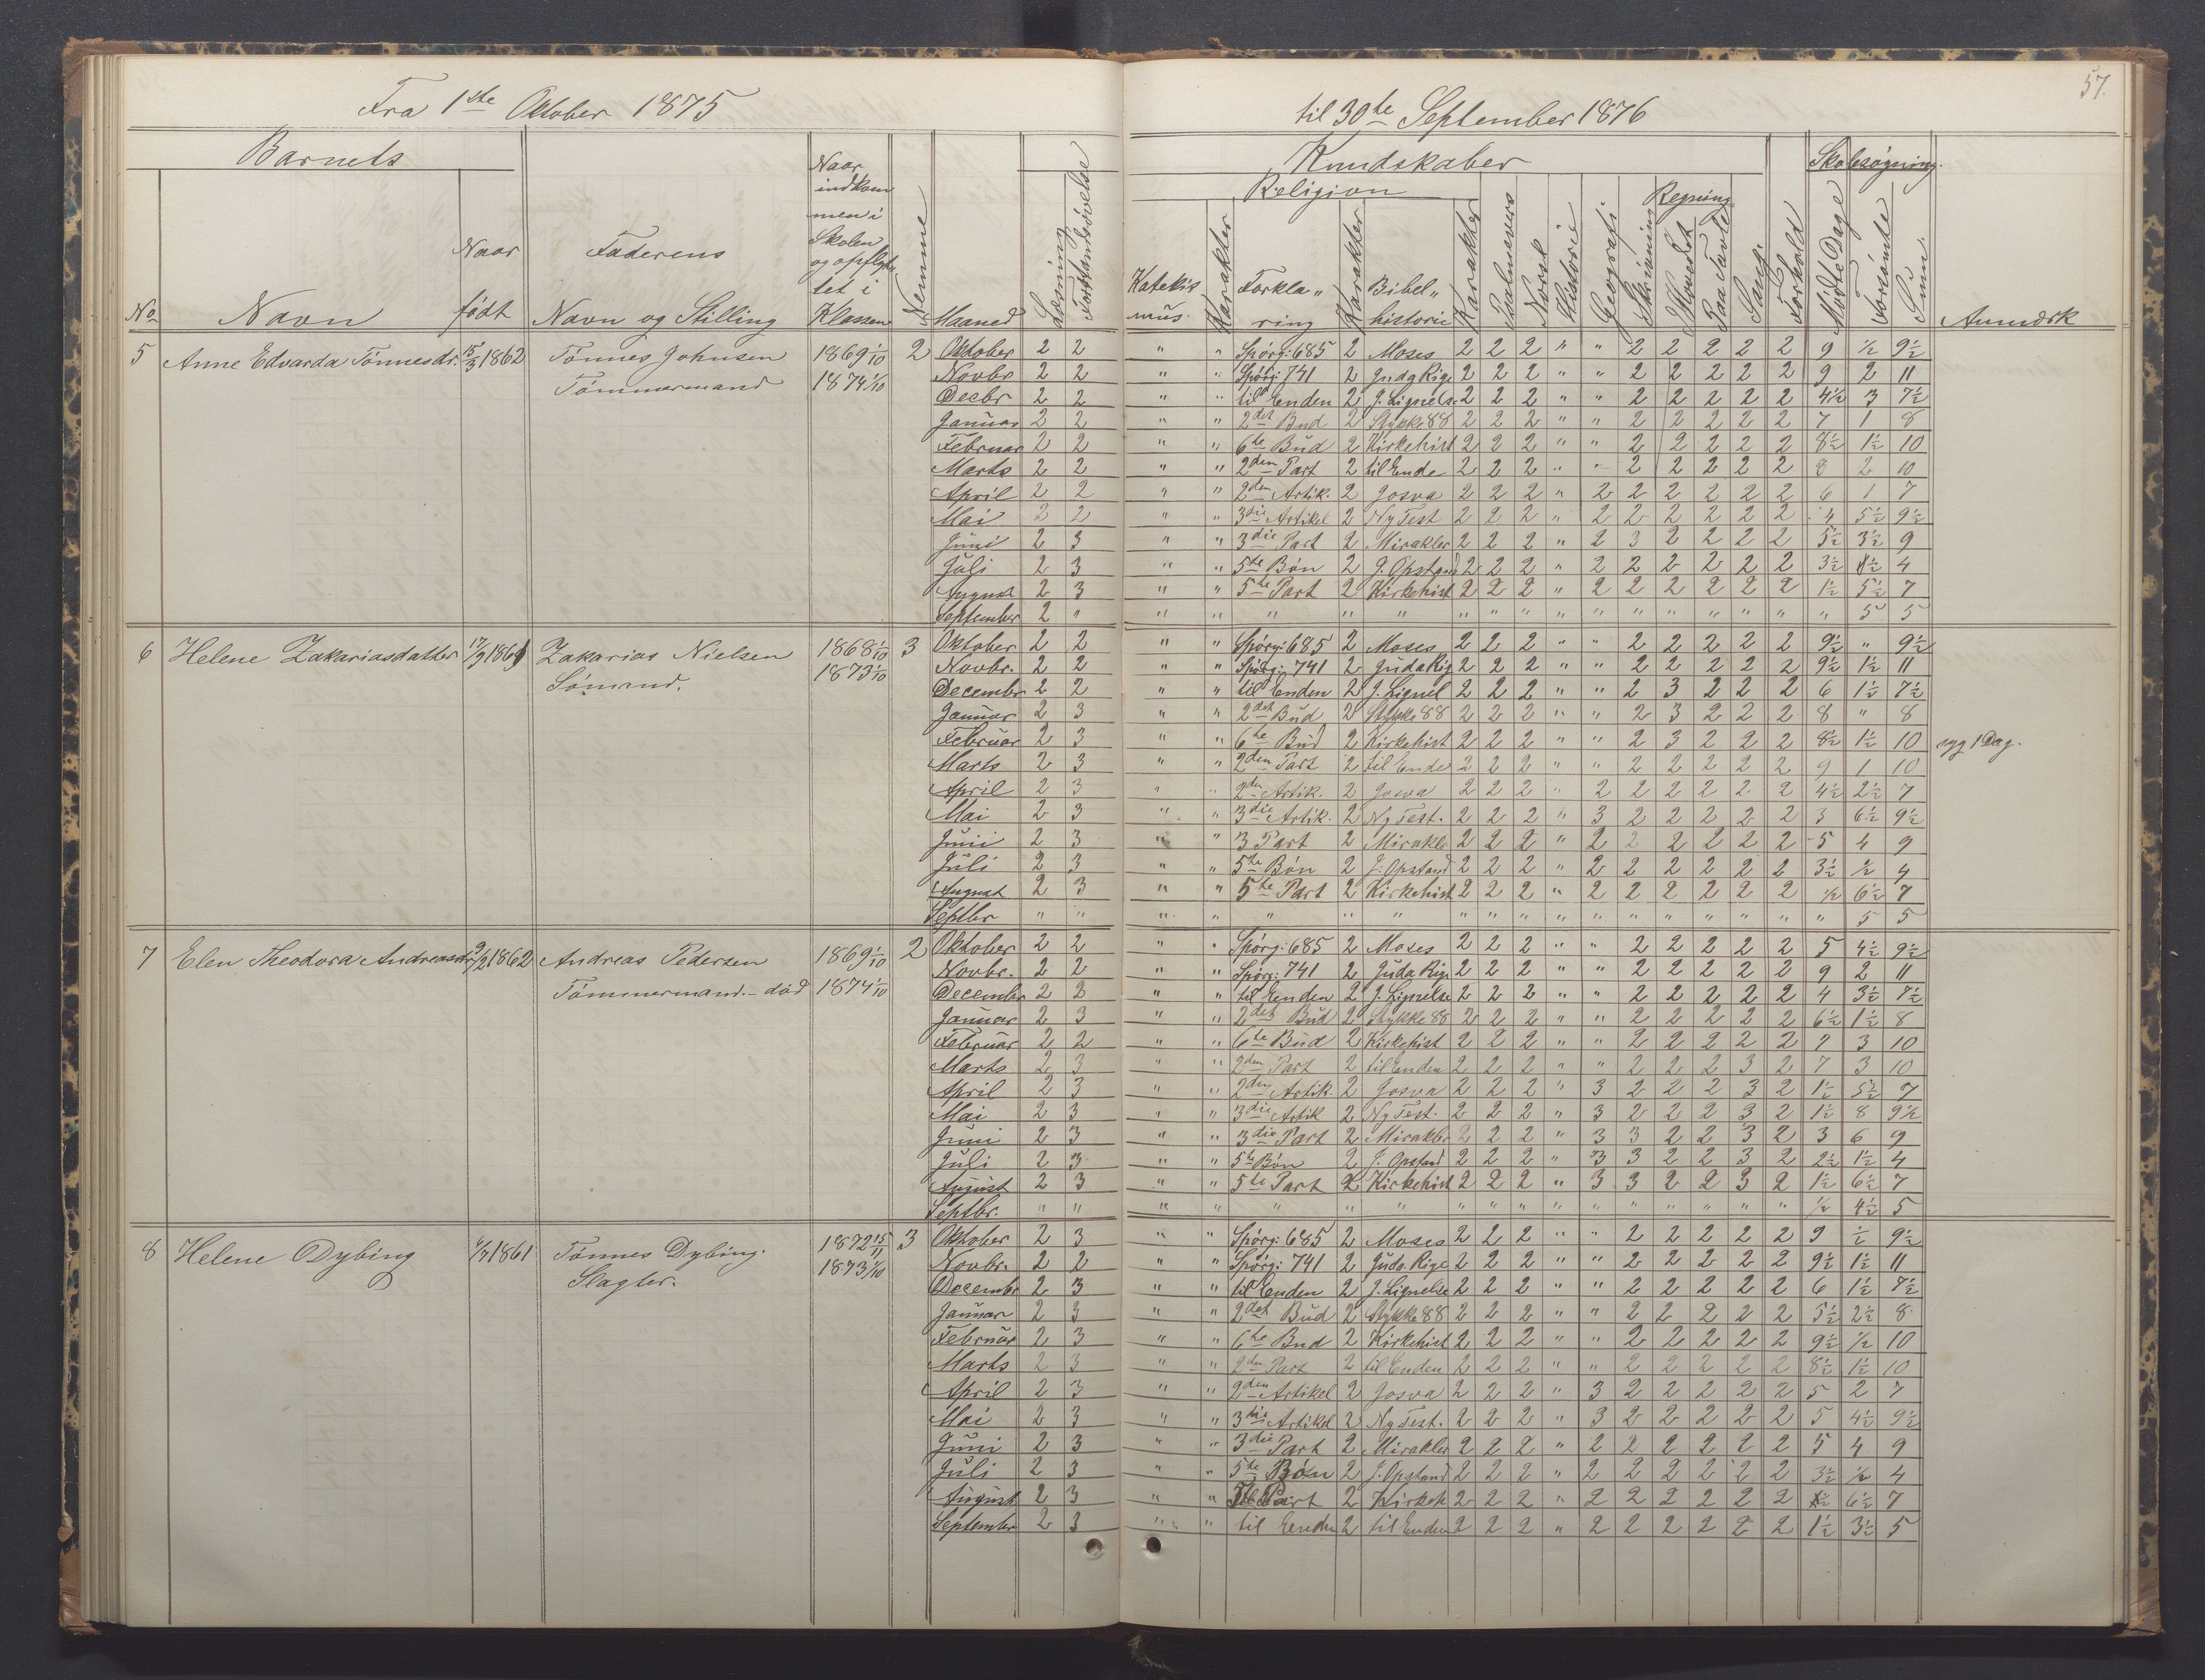 57.
Fra 1ste Oktober 1875 til 30te September 1876
Barnets Kundskaber Skolesøgning.
Religion Regning
No Navn Naar født Faderens Navn og Stilling Naar indkommen i Skolen og opflyttet i Klassen Nemme Maaned Læsning Forstandsøvelse Katekismus Karakter Forklaring Karakter Bibelhistorie Karakter Psalmevers Norsk Historie Geografi Skrivning Hovedet Paa Tavle Sang Forhold Mødte Dage Forsømte Sum. Anmærk
5 Anne Edvarda Tønnesdr. 15/3 1862 Tønnes Johnsen 1869 1/10 2 Oktober 2 2 " " Spörg: 685 2 Moses 2 2 2 " " 2 2 2 2 2 9 ½ 9½
Tømmermand 1874 1/10 Novbr 2 2 " " Spörg: 741 2 Juda Rige 2 2 2 " " 2 2 2 2 2 9 2 11
Decbr 2 2 " " til Enden 2 J. Lignelse 2 2 2 " " 2 2 2 2 2 4½ 3 7½
Januar 2 2 " " 2det Bud 2 Stykke 88 2 2 2 " " 2 2 2 2 2 7 1 8
Februar 2 2 " " 6te Bud 2 Kirkehist 2 2 2 " " 2 2 2 2 2 8½ 1½ 10
Marts 2 2 " " 2den Part 2 til Ende 2 2 2 " " 2 2 2 2 2 8 2 10
April 2 2 " " 2den Artik. 2 Josva 2 2 2 " 2 2 2 2 2 2 6 1 7
Mai 2 2 " " 3die Artikel 2 Ny Test 2 2 2 " 2 2 2 2 2 2 4 5½ 9½
Juni 2 3 " " 3die Part 2 Mirakler 2 2 2 " 2 3 2 2 2 2 5½ 3½ 9
Juli 2 3 " " 5te Bön 2 J. Opstand 2 2 2 " 2 2 2 2 2 2 3½ ½ 4
August 2 3 " " 5te Part 2 Kirkehist 2 2 2 " 2 2 2 2 2 2 1½ 5½ 7
September 2 " " " " " " " " " " " " " " " " " 5 5
6 Helene Zakariasdatter 17/9 1861 Zakarias Nielsen 1868 1/10 3 Oktober 2 2 " " Spörg: 685 2 Moses 2 2 2 " " 2 2 2 2 2 9½ " 9½
Sömand. 1873 1/10 Novbr. 2 2 " " Spörg: 741 2 Juda Rig 2 2 2 " " 2 2 2 2 2 9½ 1½ 11
Decembr 2 2 " " til Enden 2 J. Lignel 2 2 2 " " 2 3 2 2 2 6 1½ 7½
Januar 2 3 " " 2det Bud 2 Stykke 88 2 2 2 " " 2 3 2 2 2 8 " 8
Februar 2 3 " " 6te Bud 2 Kirkehist 2 2 2 " " 2 3 2 2 2 8½ 1½ 10 syg 1 Dag.
Marts 2 3 " " 2den Part 2 til Ende 2 2 2 " " 2 2 2 2 2 9 1 10
April 2 3 " " 2den Artik. 2 Josva 2 2 2 " 2 2 2 2 2 2 4½ 2½ 7
Mai 2 3 " " 3die Artik. 2 Ny Test. 2 2 2 " 3 2 2 2 2 2 3 6½ 9½
Juni 2 3 " " 3 Part 2 Mirakle 2 2 2 " 2 2 2 2 2 2 5 4 9
Juli 2 3 " " 5te Bön 2 J. Opstand 2 2 2 " 2 2 2 2 2 2 3½ ½ 4
August 2 3 " " 5te Part 2 Kirkehist 2 2 2 " 2 2 2 2 2 2 ½ 6½ 7
Septbr " " " " " " " " " " " " " " " " " " 5 5
7 Elen Theodora Andreasdr 9/2 1862 Andreas Pedersen 1869 1/10 2 Oktober 2 2 " " Spörg: 685 2 Moses 2 2 2 " " 2 2 2 2 2 5 4½ 9½
Tømmermand. - död 1874 1/10 Novbr. 2 2 " " Spörg: 741 2 Juda Rige 2 2 2 " " 2 2 2 2 2 9 2 11
December 2 2 " " til Enden 2 J. Lignelse 2 2 2 " " 2 2 2 2 2 4 3½ 7½
Januar 2 3 " " 2det Bud 2 Stykke 88 2 2 2 " " 2 2 2 2 2 6½ 1½ 8
Februar 2 2 " " 6te Bud 2 Kirkehist 2 2 2 " " 2 2 2 2 2 7 3 10
Marts 2 3 " " 2den Part 2 til Enden 2 2 2 " " 2 2 2 3 2 7 3 10
April 2 3 " " 2den Artik. 2 Josva 2 2 2 " 3 2 2 2 3 2 1½ 5½ 7
Mai 2 3 " " 3die Artik 2 Ny Test. 2 2 2 " 3 2 2 2 3 2 1½ 8 9½
Juni 2 3 " " 3die Part 2 Mirakler 2 2 2 " 3 3 2 2 3 2 3 6 9
Juli 2 3 " " 5te Bön 2 J. Opstand 2 2 2 " 3 3 2 2 3 2 2½ 1½ 4
August 2 3 " " 5te Part 2 Kirkehist 2 2 2 " 3 3 2 2 3 2 1½ 6½ 7
Septbr. " " " " " " " " " " " " " " " " " ½ 4½ 5
8 Helene Dybing 4/7 1861 Tønnes Dybing. 1872 15/11 3 Oktober 2 3 " " Spörg: 685 2 Moses 2 2 2 " " 2 2 2 2 2 9 ½ 9½
Slagter. 1873 1/10 Novbr. 2 2 " " Spörg: 741 2 Juda Rige 2 2 2 " " 2 2 2 2 2 9½ 1½ 11
Decembr 2 3 " " til Enden 2 J. Lignelse 2 2 2 " " 2 2 2 2 2 6 1½ 7½
Januar 2 3 " " 2det Bud 2 Stykke 88 2 2 2 " " 2 2 2 2 2 5½ 2½ 8
Februar 2 3 " " 6te Bud 2 Kirkehist 2 2 2 " " 2 2 2 2 2 9½ ½ 10
Marts 2 3 " " 2den Part 2 til Enden 2 2 2 " " 2 2 2 2 2 8½ 1½ 10
April 2 3 " " 2den Artikel 2 Josva 2 2 2 " 3 2 2 2 2 2 5 2 7
Mai 2 3 " " 3die Artikel 2 Ny Test. 2 2 2 " 3 2 2 2 2 2 5 4½ 9½
Juni 2 3 " " 3die Part 2 Mirakler 2 2 2 " 2 2 2 2 2 2 5 4 9
Juli 2 3 " " 5te Bön 2 J. Opstand 2 2 2 " 2 2 2 2 2 2 3½ ½ 4
August 2 3 " " Part 2 Kirkeh 2 2 2 " 2 2 2 2 2 2 ½ 6½ 7
September 2 3 " " til Enden 2 til Enden 2 2 2 " 2 2 2 2 2 2 1½ 3½ 5